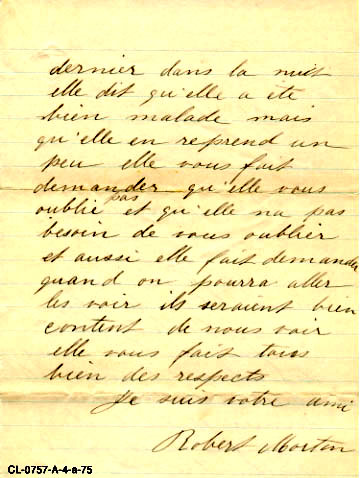 dernier dans la nuit
elle dit qu'elle a ete
bien malade mais
qu'elle en reprend un
peu elle vous fait
demander qu'elle vous
oublie pas et qu'elle na pas
besoin de vous oublier
et aussi elle fait demander
quand on pourra aller
les voir ils seraient bien
content de nous voir
elle vous fait tous
bien des respects
Je suis votre ami
Robert Morton
CL-0757-A-4-a-75